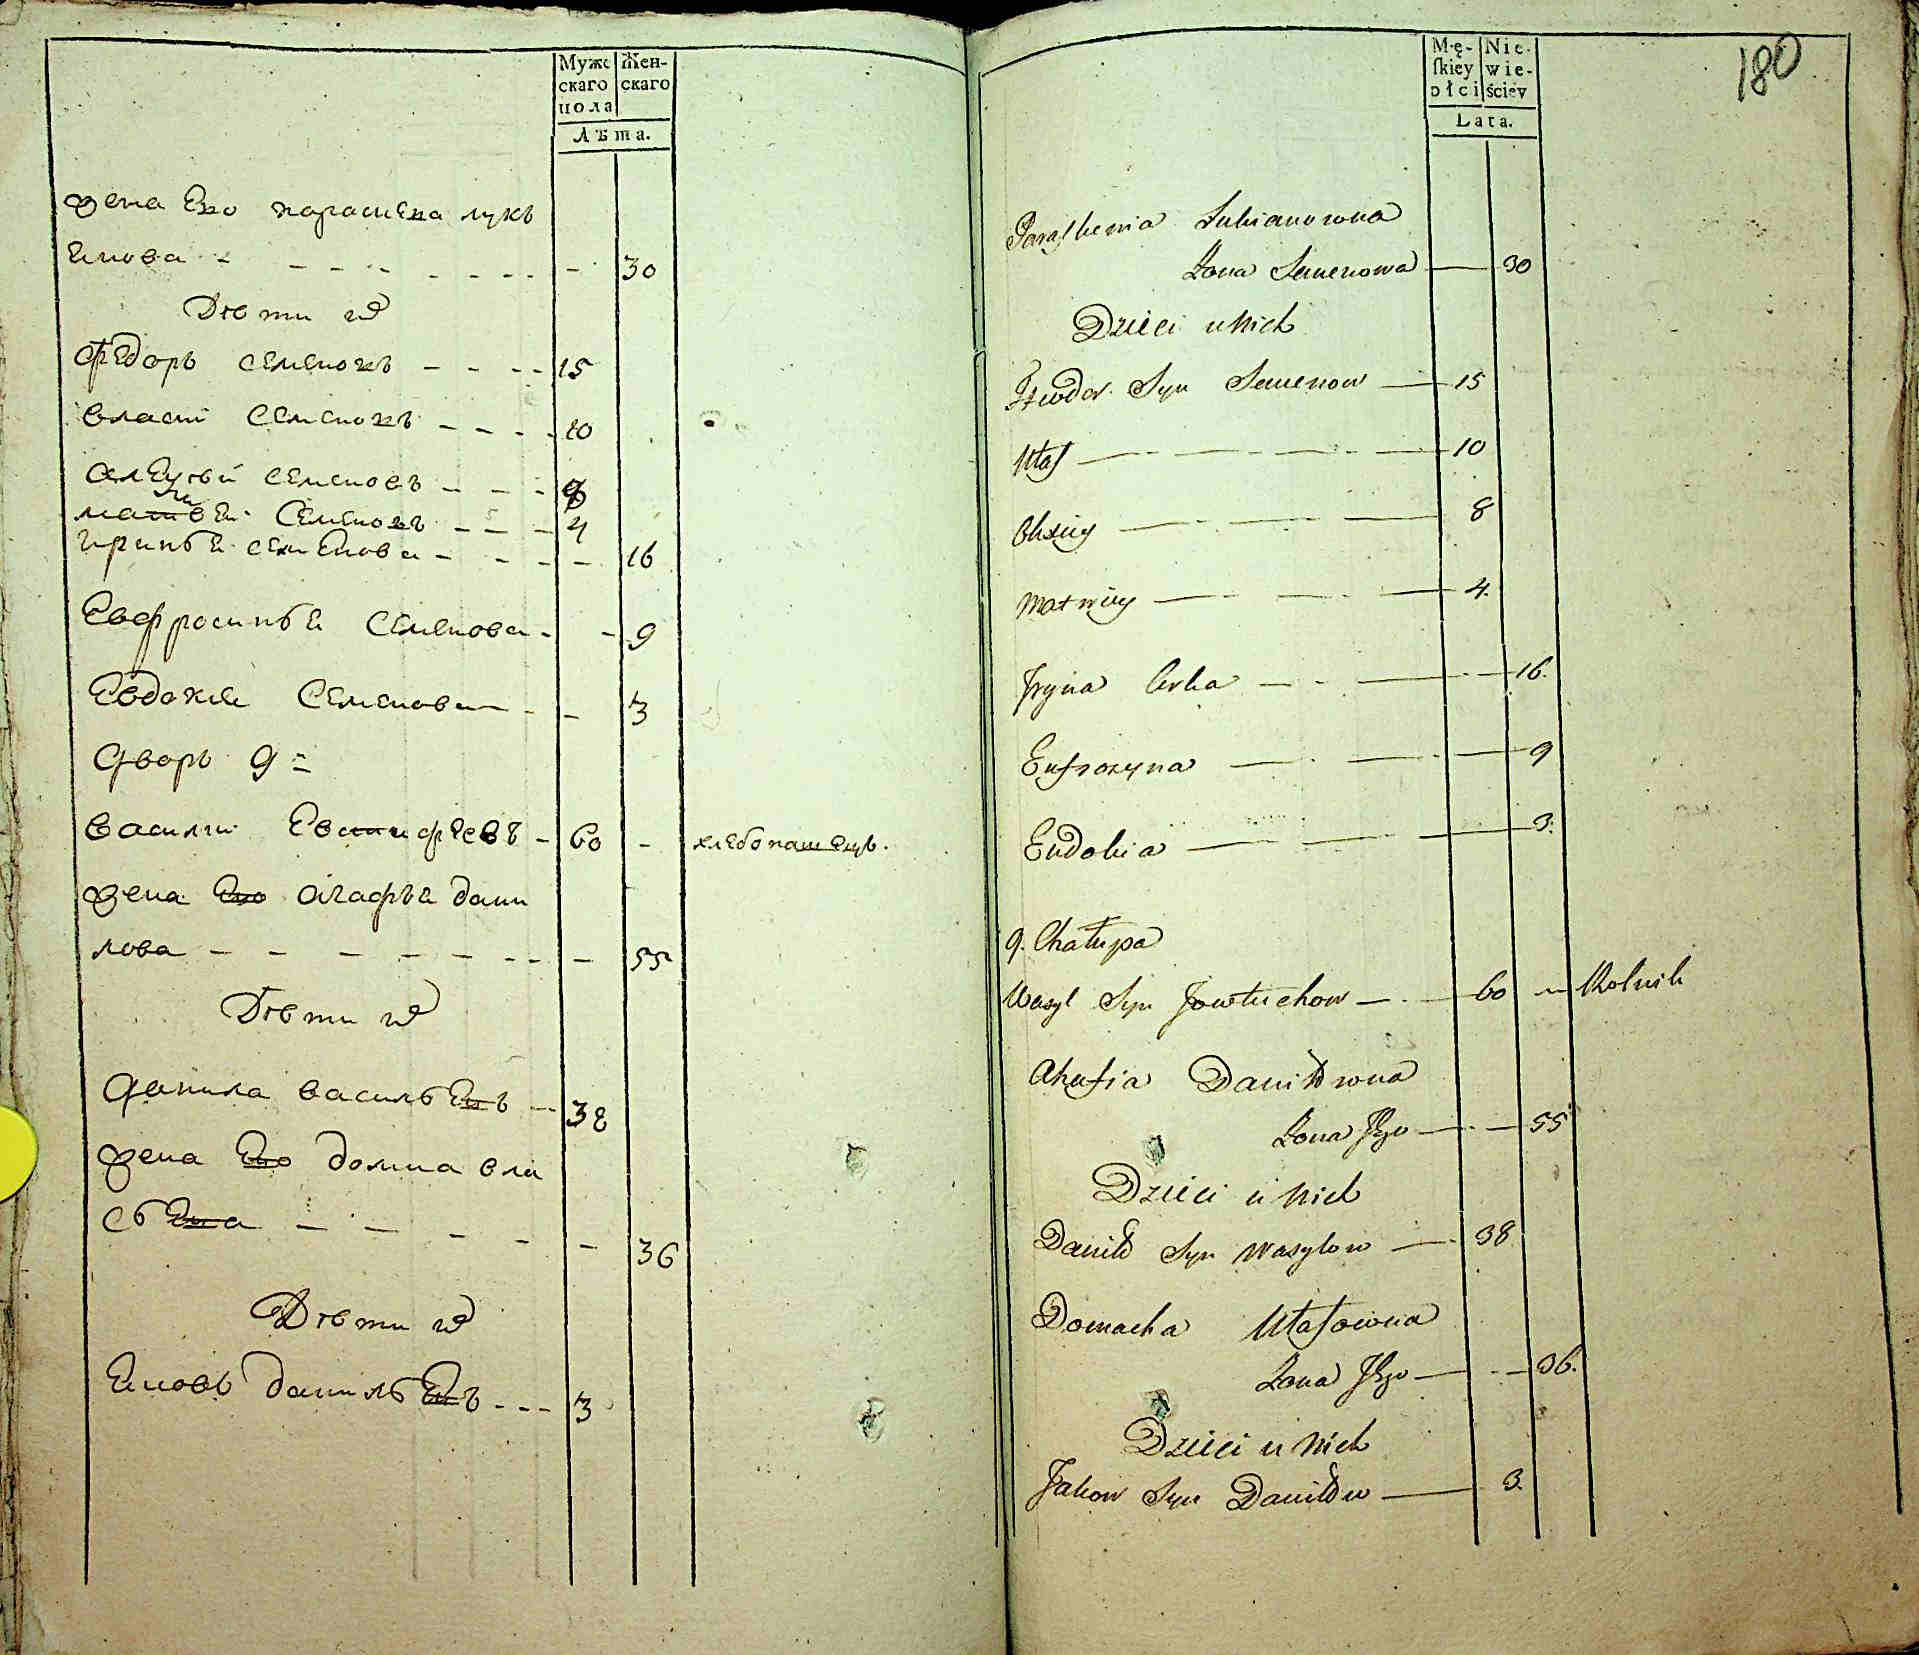 Мужс
скаго
пола
Жен-
скаго
Лѣта.
жена Его параскева лукь
янова - - - - - - - - 30
Дѣти их
федоръ семеновъ - - - - 15
власъ семеновъ - - - - 10
алеѯѣй семеновъ - - - 8
матвей Семеновъ - - - 4
иринья семенова - - - - 16
Евфросинья Семенова - - 9
Евдокия Семенова - - 3
дворъ 9=
василий Евтифеевъ - 60 - хлебопашецъ.
жена Его агафья дани
лова - - - - - - - - 55
Дѣти их
данила васильевъ - - 38
жена Его домна вла
сьева - - - - - - 36
Дѣти их
Яковъ данильевъ - - - 3
180
Mę-
skiey
płci
Nie-
wie-
ściey
Lata.
Paraskewia Łukianowna
Żona Semenowa — 30
Dzieci u Nich
Fteodor Syn Semenow — 15
Własz — - — - — 10
Olexiey — - — 8
Matwiey — - — 4.
Jryna Corka — - — 16.
Eufrozyna — - — 9
Eudokia — - — 3.
9. Chałupa
Wasyl Syn Jowtuchow — - — 60 — Rolnik
Ahafia Daniłowna
Żona Jego — - — 55
Dzieci u Nich
Daniło Syn Wasylow — 38
Domacha Własowna
Żona Jego — - - 36.
Dzieci u Nich
Jakow Syn Daniłow — 3.